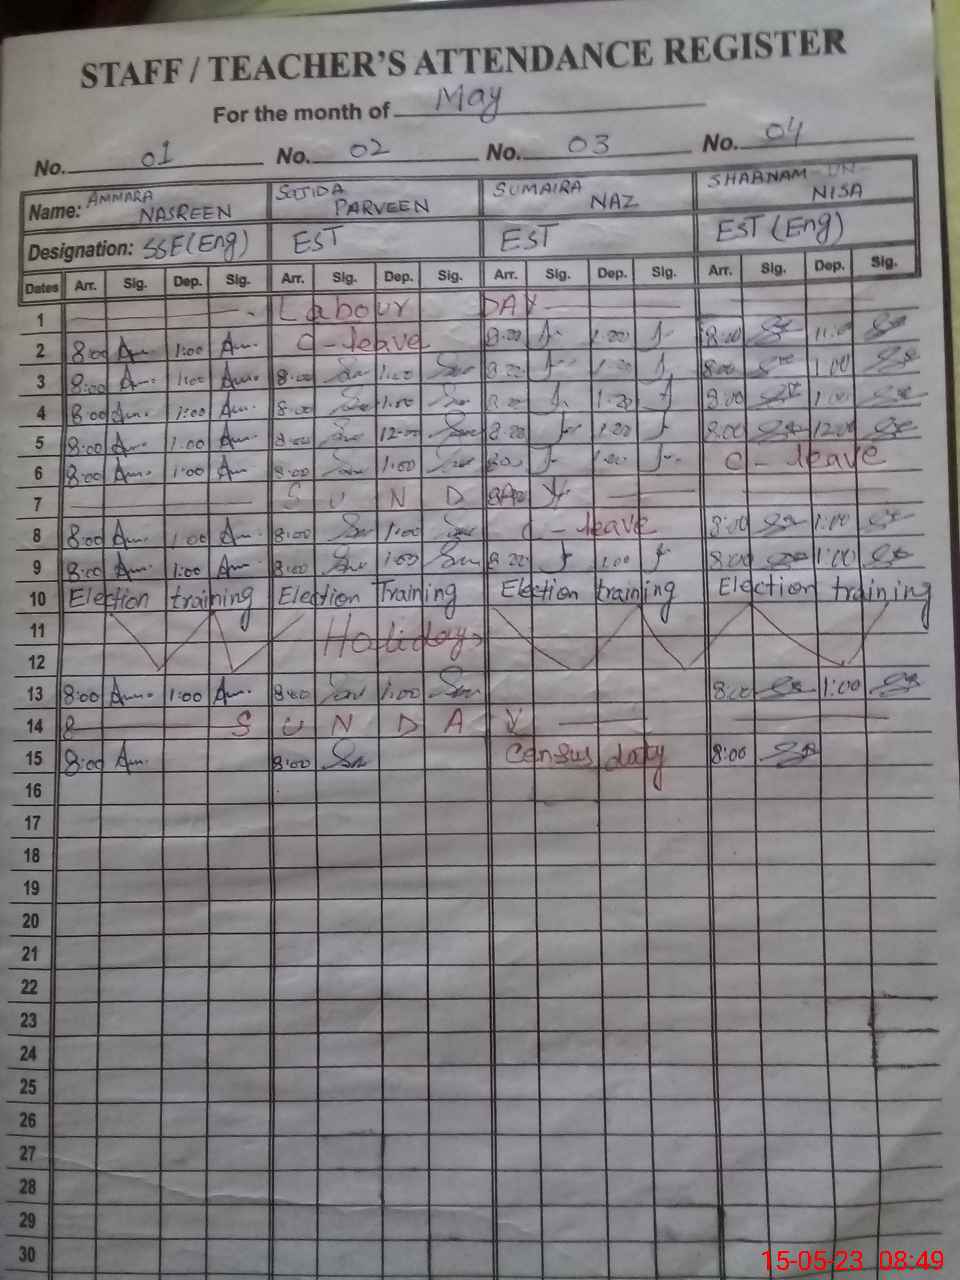 STAFF / TEACHER'S ATTENDANCE REGISTER
For the month of May
No. 01 No. 02 No. 03 No. 04
Name: AMMARA NASREEN SAJIDA PARVEEN SUMAIRA NAZ SHABNAM UN NISA
Designation: SSE(Eng) EST EST EST (Eng)
Dates Arr. Sig. Dep. Sig. Arr. Sig. Dep. Sig. Arr. Sig. Dep. Sig. Arr. Sig. Dep. Sig.
1 Labour DAY
2 8:00 Am. 1:00 Am. C-leave 8:00 1:00 8:00
3 8:00 Am. 1:00 Am. 8:00 1:00 8:00 1:00 8:00 1:00
4 8:00 Am. 1:00 Am. 8:00 1:00 8:00 1:00 8:00 1:00
5 8:00 Am. 1:00 Am. 8:00 12:00 8:00 1:00 8:00 12:00
6 8:00 Am. 1:00 Am 8:00 1:00 8:00 1:00 C-leave
7 S U N D A Y
8 8:00 Am. 1:00 Am. 8:00 1:00 C-leave 8:00 1:00
9 8:00 Am. 1:00 Am. 8:00 1:00 8:00 1:00 8:00 1:00
10 Election training Election Training Election training Election training
11 Holidays
12
13 8:00 Am. 1:00 Am. 8:00 1:00 8:00 1:00
14 8 S U N D A Y
15 8:00 Am. 8:00 Census duty 8:00
16
17
18
19
20
21
22
23
24
25
26
27
28
29
30
15-05-23 08:49